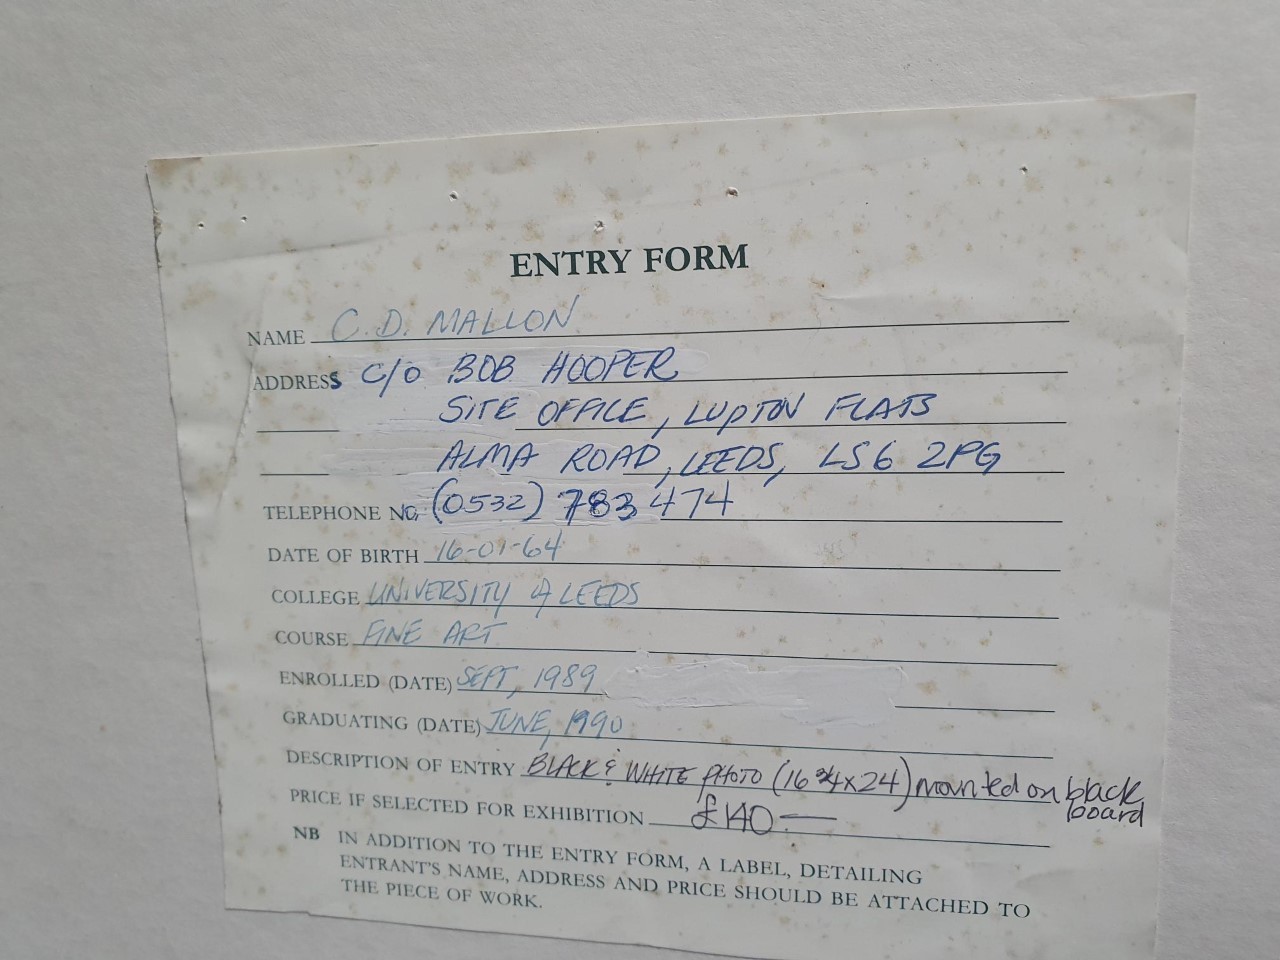 ENTRY FORM
NAME C.D. MALLON
ADDRESS C/O BOB HOOPER
SITE OFFICE, LUPTON FLATS
ALMA ROAD, LEEDS, LS6 2PG
TELEPHONE NO, (0532) 783 474
DATE OF BIRTH 16-01-64
COLLEGE UNIVERSITY of LEEDS
COURSE FINE ART
ENROLLED (DATE) SEPT, 1989
GRADUATING (DATE) JUNE, 1990
DESCRIPTION OF ENTRY BLACK & WHITE PHOTO (16 3/4 x 24) mounted on black
board
PRICE IF SELECTED FOR EXHIBITION £140 —
NB IN ADDITION TO THE ENTRY FORM, A LABEL, DETAILING
ENTRANT'S NAME, ADDRESS AND PRICE SHOULD BE ATTACHED TO
THE PIECE OF WORK.